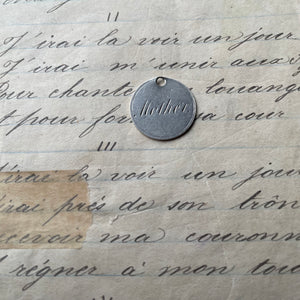 J'irai la voir un jour
J'irai m'unir aux
Pour chanter louang
t pour for sa cour
Mother
J'irai la voir un jour
irai près de son trôn
ecevoir ma couronn
t régner à mon tou